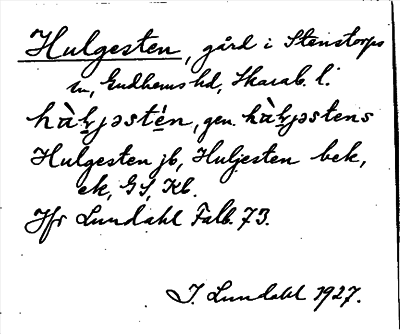 Hulgesten, gård i Stenstorps
sn, Gudhems hd, Skarab. l.
hàl̥jəstén, gen. hàl̥jəstens
Hulgesten jb, Huljesten bek,
ek, GS, Kb.
Jfr Lundahl Falb. 73.
I. Lundahl 1927.